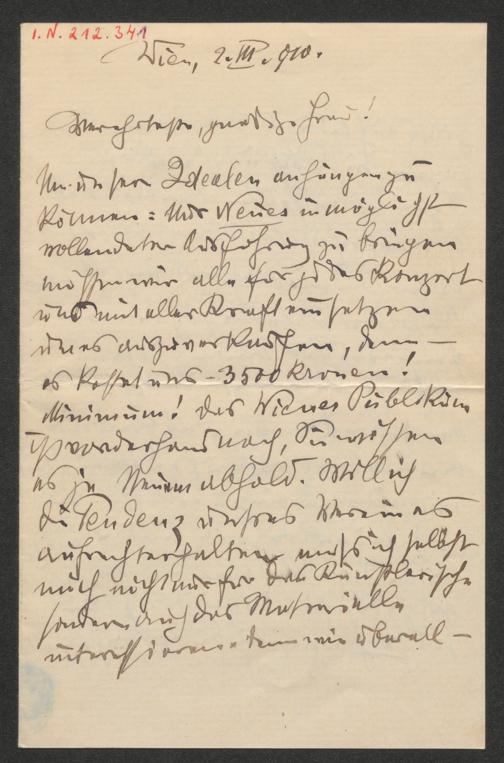 I.N. 212.341
Wien, 2. III. 910.
Verehrteste, gnädige Frau!
Um unsern Idealen anhängen zu
können: Nur Neues in möglichst
vollendeter Ausführung zu bringen
müssen wir alle für jedes Konzert
uns mit aller Kraft einsetzen
um es auszuverkaufen, denn —
es kostet uns – 3500 Kronen!
Minimum! Das Wiener Publikum
ist vorderhand noch, Sie wissen
es ja Neuem abhold. Will ich
die Tendenz unsres Vereines
aufrechterhalten muss ich selbst
mich nicht nur für das Künstlerische
sondern auch das Materielle
interessieren – denn wie überall —